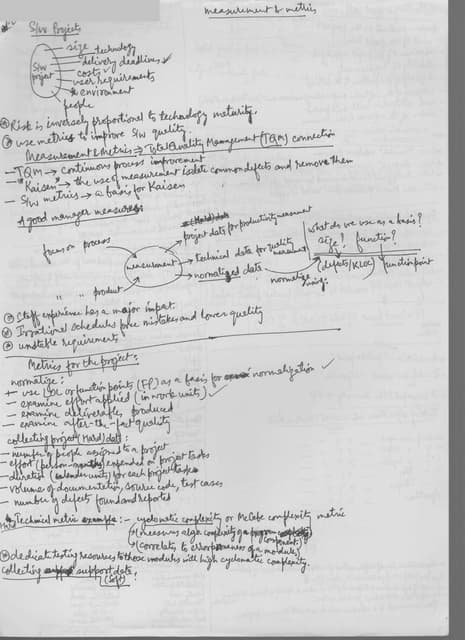 measurement & metrics
S/w Projects
size
technology
delivery deadlines
costs
user requirements
environment
people
S/w project
Risk is inversely proportional to technology maturity.
use metrics to improve S/w quality.
Measurement & Metrics → Total Quality Management (TQM) connection
— TQM → continuous process improvement
— "Kaisen" → the use of measurement isolate common defects and remove them
— S/w metrics → a basis for Kaisen
A good manager measures:
(Hard) data
project data for productivity measurement
focus on process
measurement
technical data for quality measurement
" " product
normalized data
normalize
what do we use as a basis?
size? function?
(defects/KLOC) function point
Staff experience has a major impact.
Irrational schedules force mistakes and lower quality
unstable requirements
Metrics for the project:
normalize:
— use LOC or function points (FP) as a basis for normalization
— examine effort applied (in work units)
— examine deliverables produced
— examine after-the-fact quality
collecting project (Hard) data:
— number of people assigned to a project
— effort (person-months) expended on project tasks
— duration (calendar units) for each project tasks
— volume of documentation, source code, test cases
— number of defects found and reported
Technical metric example:— cyclomatic complexity or McCabe complexity metric
measures algo. complexity of a program component.
(correlates to errorproneness of a module)
dedicate testing resources to those modules with high cyclomatic complexity.
collecting support data:
(soft)